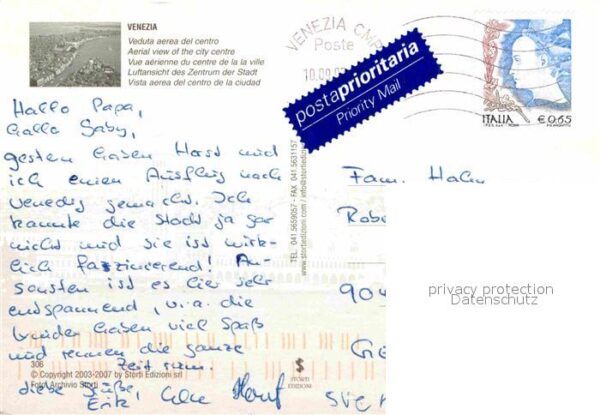 VENEZIA
Veduta aerea del centro
Aerial view of the city centre
Vue aérienne du centre de la la ville
Luftansicht des Zentrum der Stadt
Vista aerea del centro de la ciudad
VENEZIA CMP
Poste
postaprioritaria
Priority Mail
ITALIA € 0,65
Hallo Papa,
Hallo Gaby,
gestern haben Horst und
ich einen Ausflug nach
Venedig gemacht. Ich
kannte die Stadt ja gar
nicht und sie ist wirk-
lich faszinierend! An-
sonsten ist es hier sehr
entspannend, u.a. die
Kinder haben viel Spaß
und rennen die ganze
Zeit rum.
Liebe Grüße,
TEL. 041.5659057 - FAX 041.5631157
www.stortiedizioni.com / info@stortiedizioni.com
Fam. Hahn
Robe
904
privacy protection
Datenschutz
306
© Copyright 2003-2007 by Storti Edizioni srl
Foto Archivio Storti
STORTI
EDIZIONI